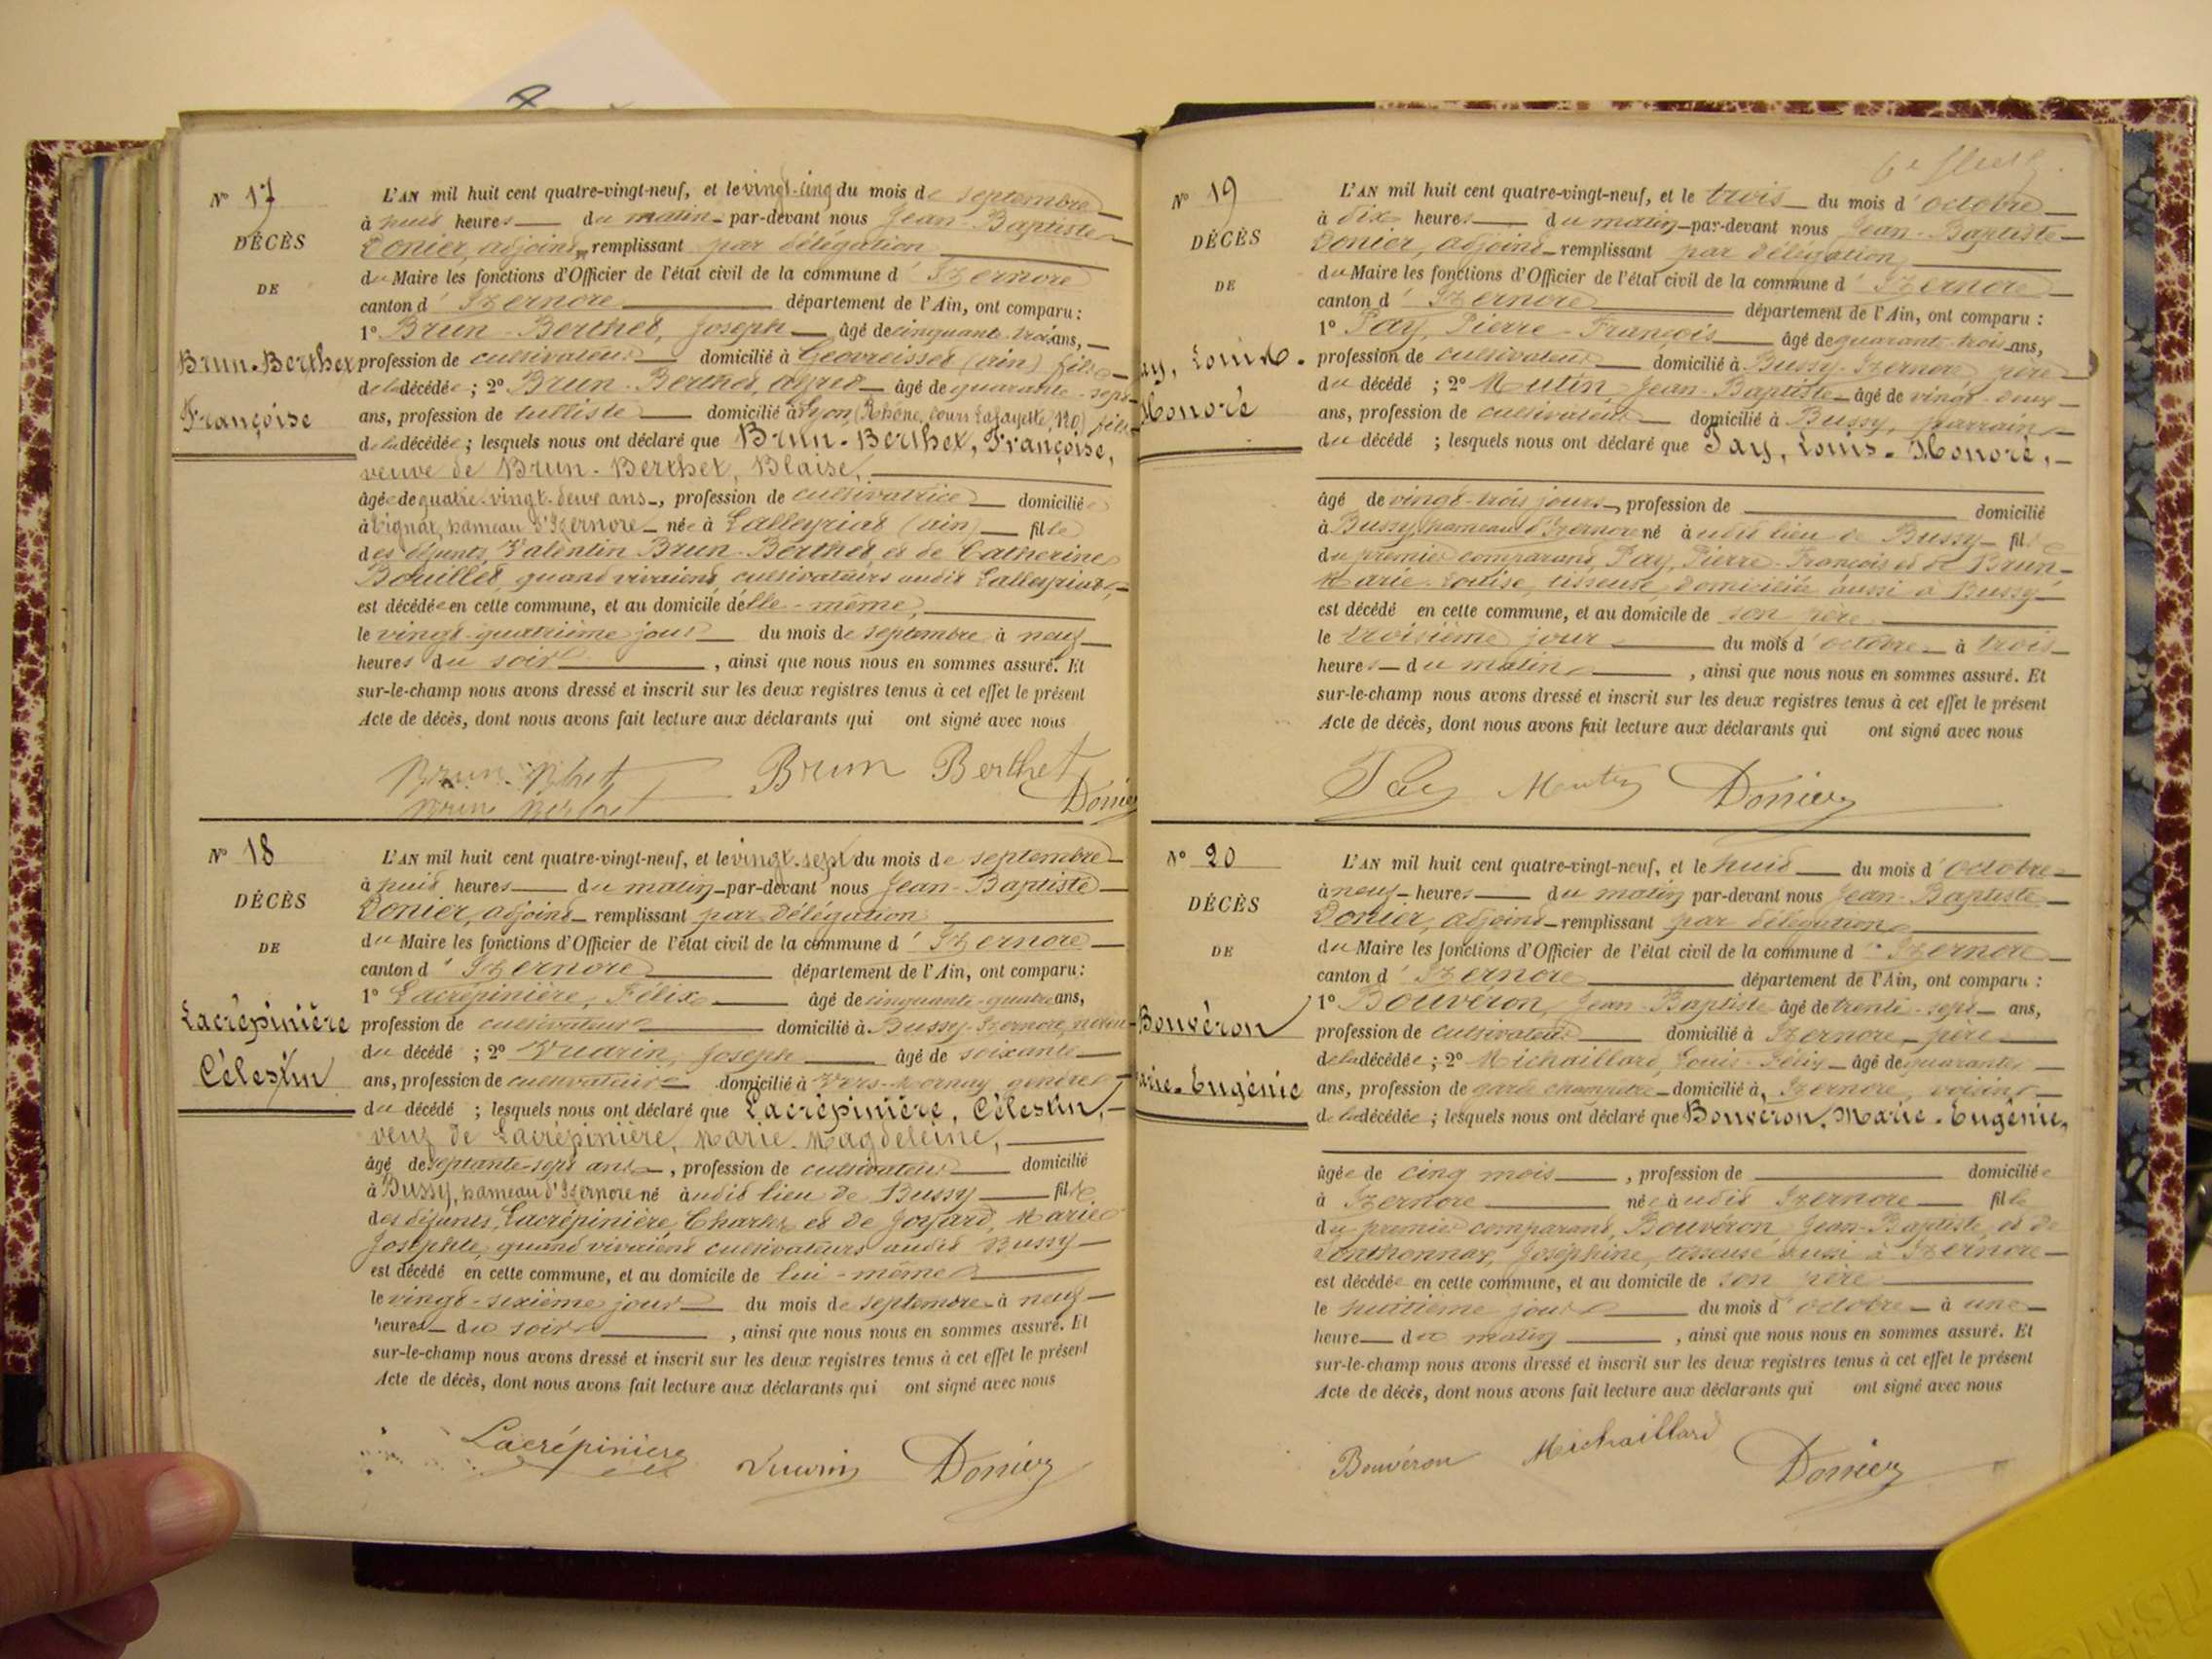 Nº 17
DÉCÈS
DE
Brun-Berthet
Françoise
L'AN mil huit cent quatre-vingt-neuf, et le vingt-cinq du mois de septembre
à huit heures du matin par-devant nous Jean-Baptiste
Donier, adjoint, remplissant par délégation
du Maire les fonctions d'Officier de l'état civil de la commune d'Izernore
canton d'Izernore département de l'Ain, ont comparu :
1º Brun-Berthet, Joseph âgé de cinquante-trois ans,
profession de cultivateur domicilié à Géovreisset (Ain) fils
de la décédée ; 2º Brun-Berthet, âgé de quarante-sept
ans, profession de tulliste domicilié à Lyon (Rhône, cours Lafayette, 120) fils
de la décédée ; lesquels nous ont déclaré que Brun-Berthet, Françoise,
veuve de Brun-Berthet, Blaise,
âgée de quatre-vingt-deux ans, profession de cultivatrice domiciliée
à Tignat, hameau d'Izernore née à Lalleyriat (Ain) fille
des défunts Valentin Brun-Berthet et de Catherine
Bouillet, quand vivaient cultivateurs audit Lalleyriat,
est décédée en cette commune, et au domicile d'elle-même,
le vingt-quatrième jour du mois de septembre à neuf
heures du soir, ainsi que nous nous en sommes assuré. Et
sur-le-champ nous avons dressé et inscrit sur les deux registres tenus à cet effet le présent
Acte de décès, dont nous avons fait lecture aux déclarants qui ont signé avec nous
Brun Bthet Brun Berthet
Brun Berthet Donier
Nº 18
DÉCÈS
DE
Lacrépinière
Célestin
L'AN mil huit cent quatre-vingt-neuf, et le vingt-sept du mois de septembre
à huit heures du matin par-devant nous Jean-Baptiste
Donier, adjoint remplissant par délégation
du Maire les fonctions d'Officier de l'état civil de la commune d'Izernore
canton d'Izernore département de l'Ain, ont comparu :
1º Lacrépinière, Félix âgé de cinquante-quatre ans,
profession de cultivateur domicilié à Bussy-Izernore,
du décédé ; 2º Vuarin, Joseph âgé de soixante
ans, profession de cultivateur domicilié à Vers-Mornay gendre
du décédé ; lesquels nous ont déclaré que Lacrépinière, Célestin,
veuf de Lacrépinière, Marie-Magdeleine,
âgé de septante-sept ans, profession de cultivateur domicilié
à Bussy, hameau d'Izernore né audit lieu de Bussy fils
des défunts, Lacrépinière, Charles et de Joyard, Marie
Josephte, quand vivaient cultivateurs audit Bussy
est décédé en cette commune, et au domicile de lui-même
le vingt-sixième jour du mois de septembre à neuf
heures du soir, ainsi que nous nous en sommes assuré. Et
sur-le-champ nous avons dressé et inscrit sur les deux registres tenus à cet effet le présent
Acte de décès, dont nous avons fait lecture aux déclarants qui ont signé avec nous
Lacrépiniere Vuarin Donier
Nº 19
DÉCÈS
DE
ay, Louis-
Honoré
L'AN mil huit cent quatre-vingt-neuf, et le trois du mois d'octobre
à dix heures du matin par-devant nous Jean-Baptiste
Donier, adjoint remplissant par délégation
du Maire les fonctions d'Officier de l'état civil de la commune d'Izernore
canton d'Izernore département de l'Ain, ont comparu :
1º Pay, Pierre-François âgé de quarante-trois ans,
profession de cultivateur domicilié à Bussy-Izernore père
du décédé ; 2º Mutin, Jean-Baptiste âgé de vingt-deux
ans, profession de cultivateur domicilié à Bussy, parrain
du décédé ; lesquels nous ont déclaré que Pay, Louis-Honoré,
âgé de vingt-trois jours, profession de domicilié
à Bussy, hameau d'Izernore né audit lieu de Bussy fils
du premier comparant, Pay, Pierre-François et de Brun-
Marie-Louise, tisseuse, domiciliée aussi à Bussy
est décédé en cette commune, et au domicile de son père
le troisième jour du mois d'octobre à trois
heures du matin, ainsi que nous nous en sommes assuré. Et
sur-le-champ nous avons dressé et inscrit sur les deux registres tenus à cet effet le présent
Acte de décès, dont nous avons fait lecture aux déclarants qui ont signé avec nous
Pay Mutin Donier
Nº 20
DÉCÈS
DE
Bouvéron
arie-Eugénie
L'AN mil huit cent quatre-vingt-neuf, et le huit du mois d'octobre
à neuf heures du matin par-devant nous Jean-Baptiste
Donier, adjoint remplissant par délégation
du Maire les fonctions d'Officier de l'état civil de la commune d'Izernore
canton d'Izernore département de l'Ain, ont comparu :
1º Bouvéron, Jean-Baptiste âgé de trente-sept ans,
profession de cultivateur domicilié à Izernore, père
de la décédée ; 2º Michaillard, Louis-Félix âgé de quarante
ans, profession de garde champêtre domicilié à, Izernore, voisin
de la décédée ; lesquels nous ont déclaré que Bouvéron, Marie-Eugénie,
âgée de cinq mois, profession de domiciliée
à Izernore née audit Izernore fille
du premier comparant, Bouvéron Jean-Baptiste, et de
Anthonnax, Joséphine, tisseuse aussi à Izernore
est décédée en cette commune, et au domicile de son père
le huitième jour du mois d'octobre à une
heure du matin, ainsi que nous nous en sommes assuré. Et
sur-le-champ nous avons dressé et inscrit sur les deux registres tenus à cet effet le présent
Acte de décès, dont nous avons fait lecture aux déclarants qui ont signé avec nous
Bouvéron Michaillard Donier